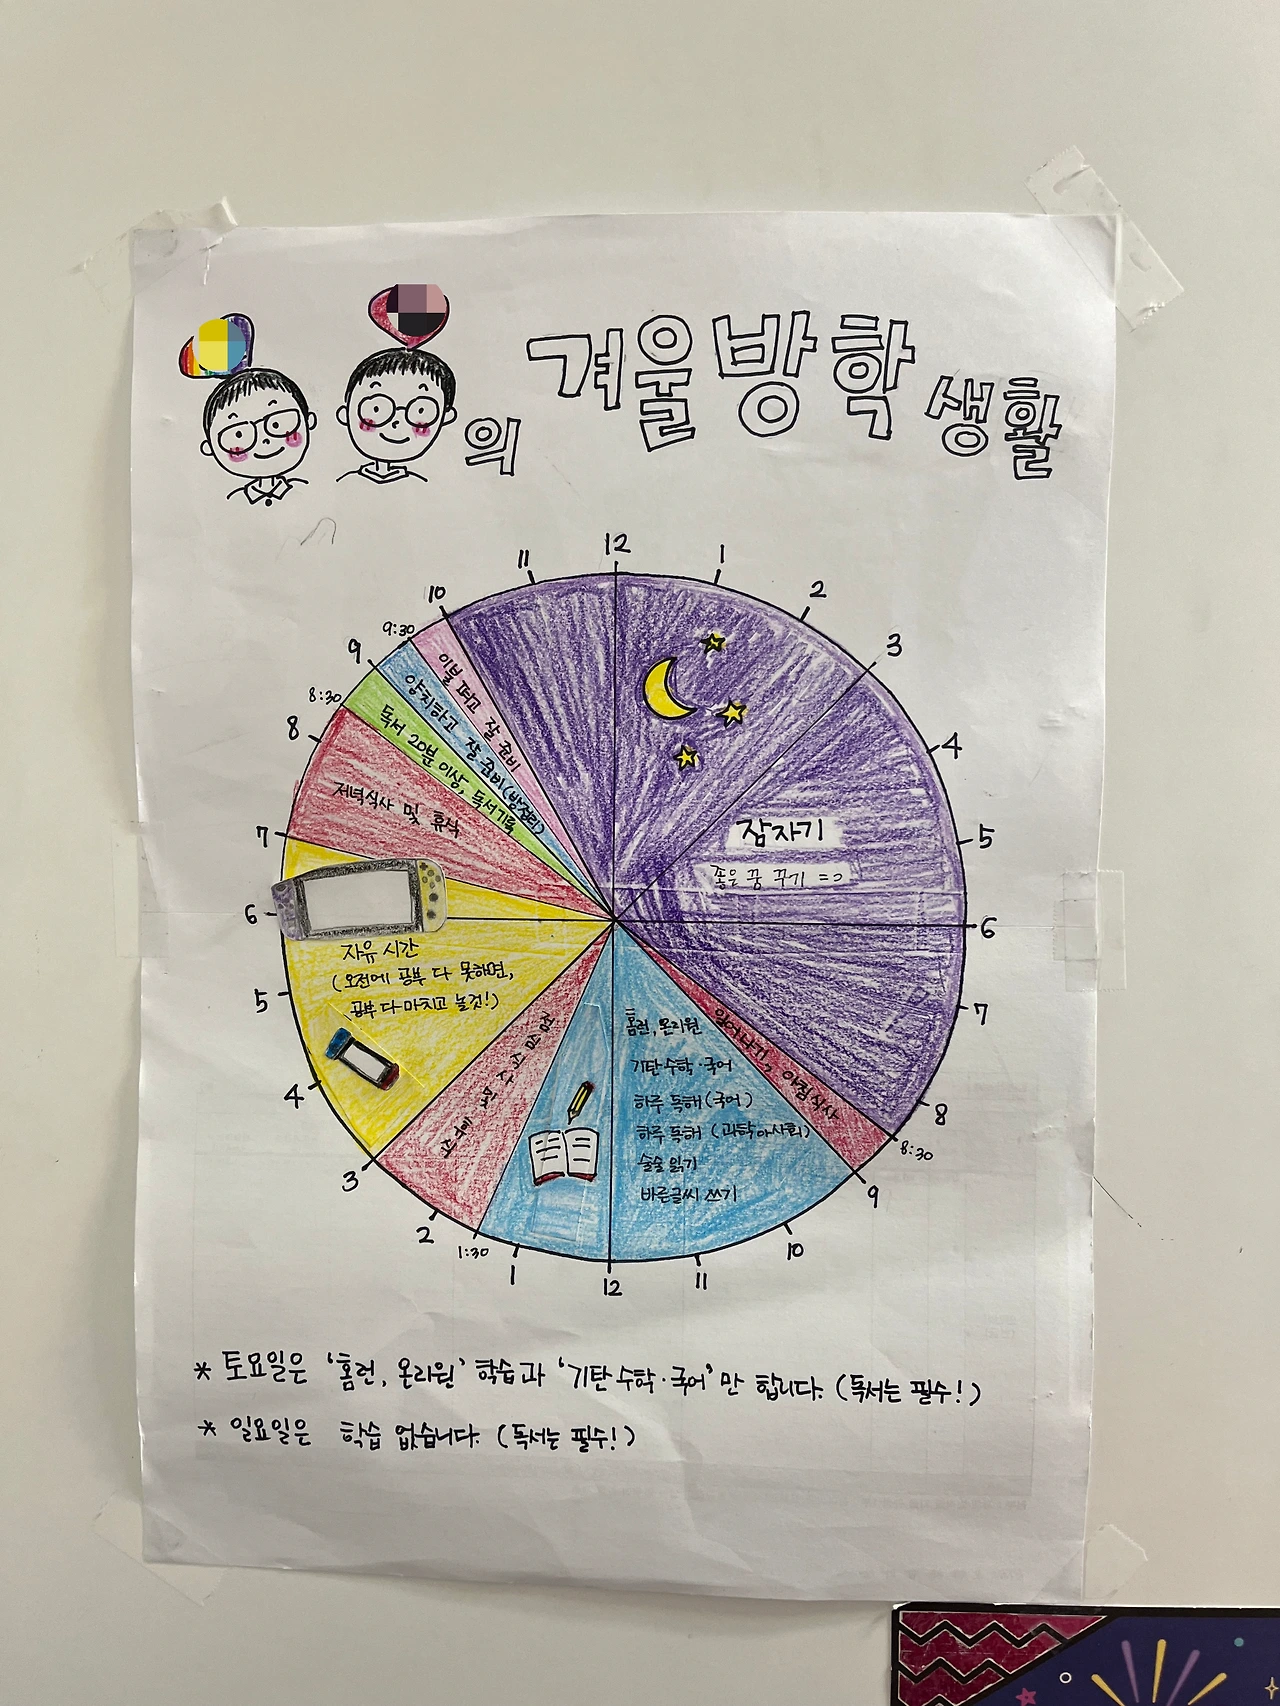 의 겨울방학 생활
12
1
2
3
4
5
6
7
8
8:30
9
10
11
12
1
1:30
2
3
4
5
6
7
8
8:30
9
9:30
10
11
잠자기
좋은 꿈 꾸기 =૦
일어나기, 아침식사
홈런, 온리원
기탄수학·국어
하루 독해(국어)
하루 독해 (과학아사회)
술술 읽기
바른글씨 쓰기
점심식사
자유 시간
(오전에 공부 다 못하면,
공부 다 마치고 놀것!)
저녁식사 및 휴식
독서 20분 이상, 독서기록
양치하고 잘 준비(방정리)
이불 펴고 잘 준비
* 토요일은 '홈런, 온리원' 학습과 '기탄수학·국어'만 합니다. (독서는 필수!)
* 일요일은 학습 없습니다. (독서는 필수!)